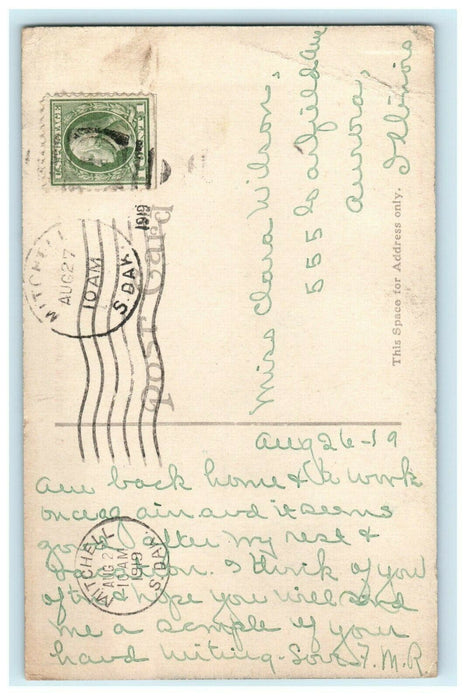 U.S. POSTAGE
MITCHELL
AUG 27
10 AM
1919
S. DAK.
Post Card
Miss Clara Wilson.
555 Garfield Ave
Aurora,
Illinois
This Space for Address only.
Aug 26-19
Am back home & to work
once again and it seems
good after my rest &
vacation. I think of you
often & hope you will send
me a sample of your
hand writing. F.M.R
MITCHELL
AUG 27
10 AM
1919
S. DAK.